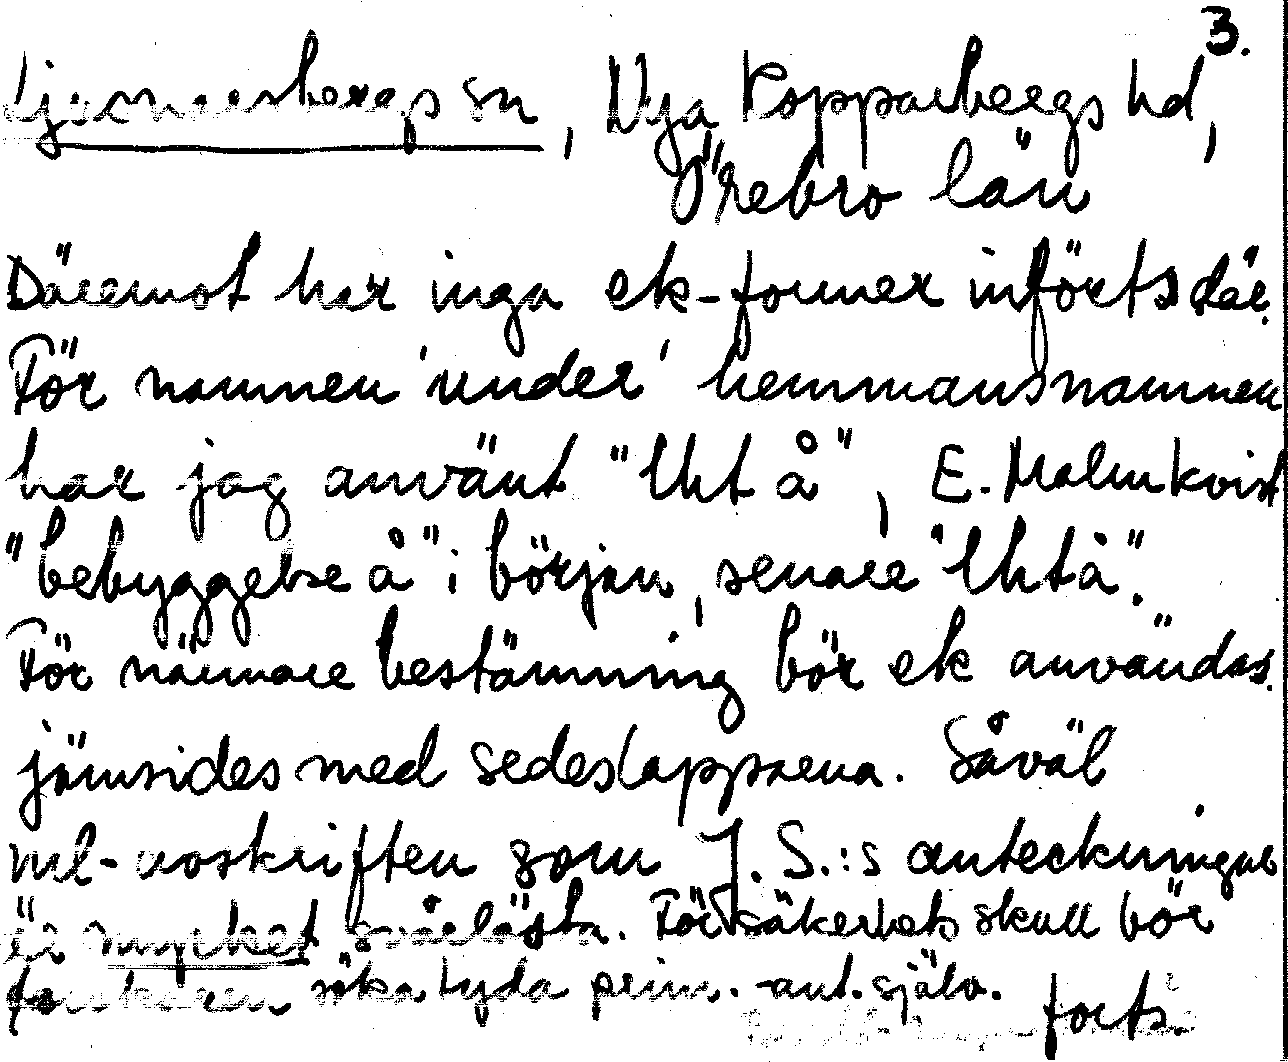 3.
Ljusnarsbergs sn, Nya Kopparbergs hd,
Örebro län
Däremot har inga ek-former införts där.
För namnen 'under' hemmansnamnen
har jag använt "Uht å", E. Malmkvist
"bebyggelse å" i början, senare "Uht å".
För närmare bestämning bör ek användas
jämsides med sedeslapparna. Såväl
ml-avskriften som J. S.:s anteckningar
är mycket svårlästa. För säkerhets skull bör
forskaren söka tyda prim.-ant. själv.
forts.